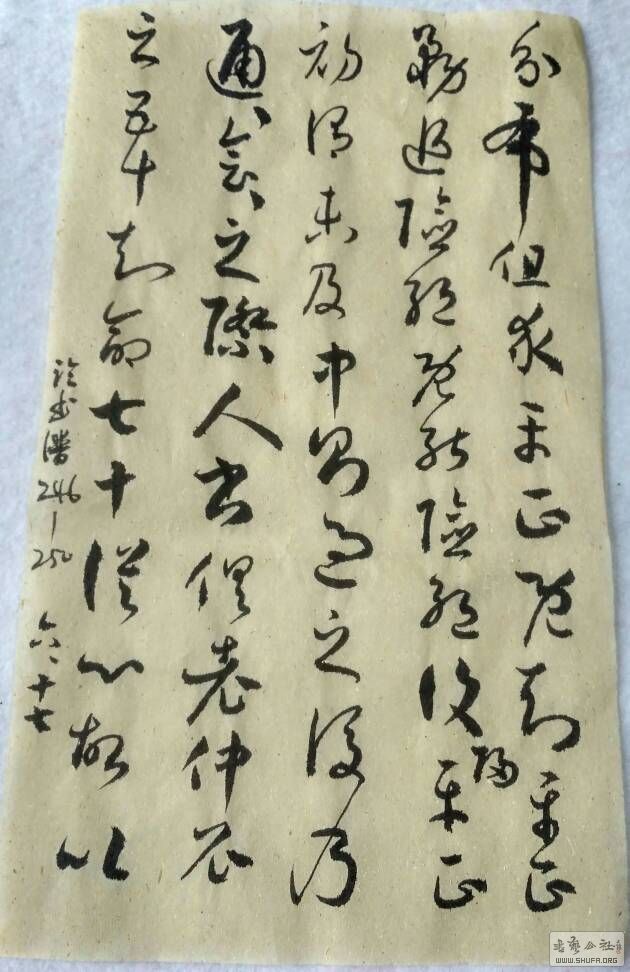 分布但求平正既知平正
務追險絕既能險絕復歸平正
初謂未及中則過之後乃
通〻會〻之際人書俱老仲尼
云五十知命七十從心故以
临书譜246-250
六.十七
书艺公社
WWW.SHUFA.ORG